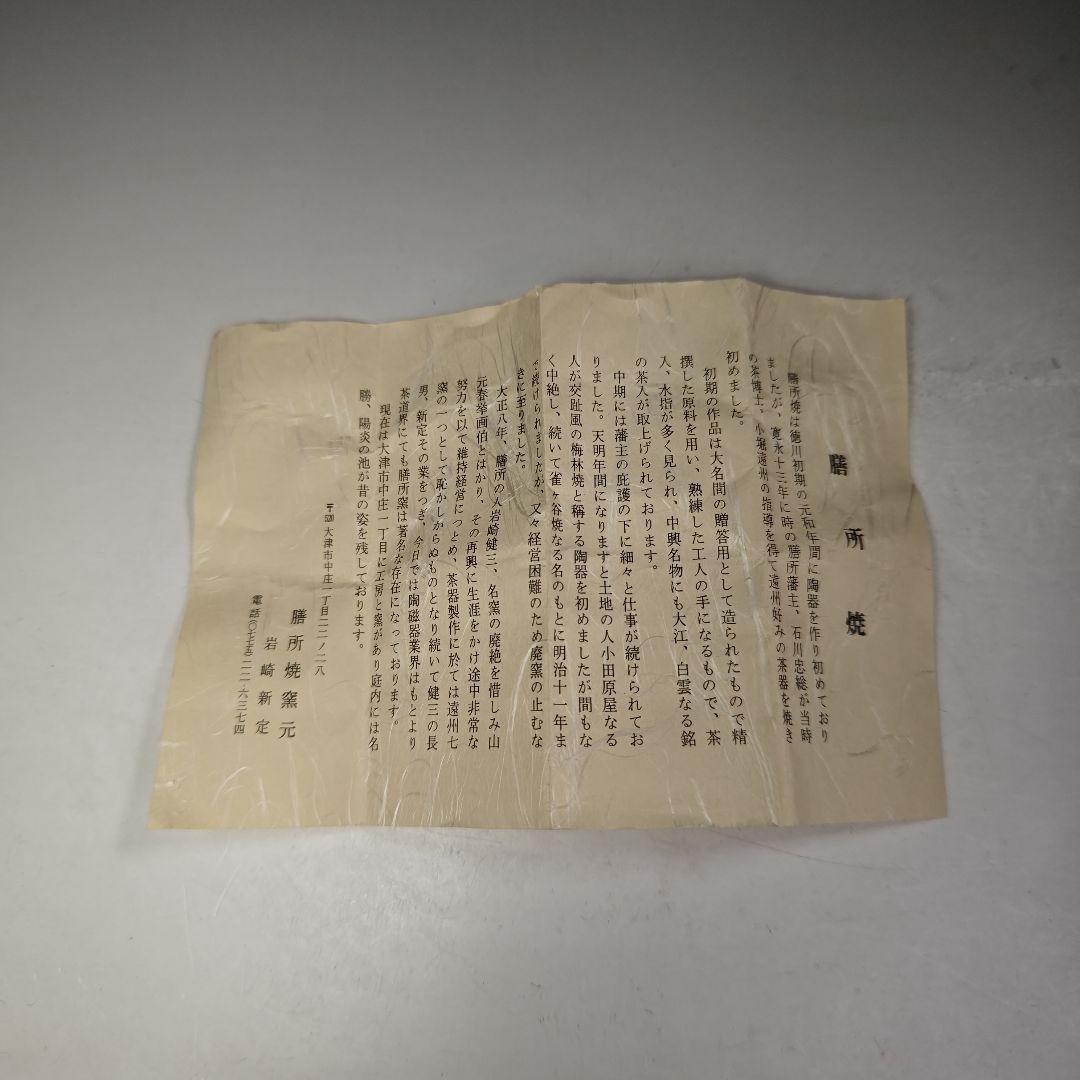 膳所焼
膳所焼は徳川初期の元和年間に陶器を作り初めており
ましたが、寛永十三年に時の膳所藩主、石川忠総が当時
の茶博士、小堀遠州の指導を得て遠州好みの茶器を焼き
初めました。
初期の作品は大名間の贈答用として造られたもので精
撰した原料を用い、熟練した工人の手になるもので、茶
入、水指が多く見られ、中興名物にも大江、白雲なる銘
の茶人が取上げられております。
中期には藩主の庇護の下に細々と仕事が続けられてお
りました。天明年間になりますと土地の人小田原屋なる
人が交趾風の梅林焼と称する陶器を初めましたが間もな
く中絶し、続いて雀ヶ谷焼なる名のもとに明治十一年ま
で続けられましたが、又々経営困難のため廃窯の止むな
きに至りました。
大正八年、膳所の人岩崎健三、名窯の廃絶を惜しみ山
元春挙画伯とはかり、その再興に生涯をかけ途中非常な
努力を以て維持経営につとめ、茶器製作に於ては遠州七
窯の一つとして恥かしからぬものとなり続いて健三の長
男、新定その業をつぎ、今日では陶磁器業界はもとより
茶道界にても膳所窯は著名な存在になっております。
現在は大津市中庄一丁目に工房と窯があり庭内には名
勝、陽炎の池が昔の姿を残しております。
〒520 大津市中庄一丁目二二ノ二八
膳所焼窯元
岩崎新定
電話(〇七七五)二二-六三七四